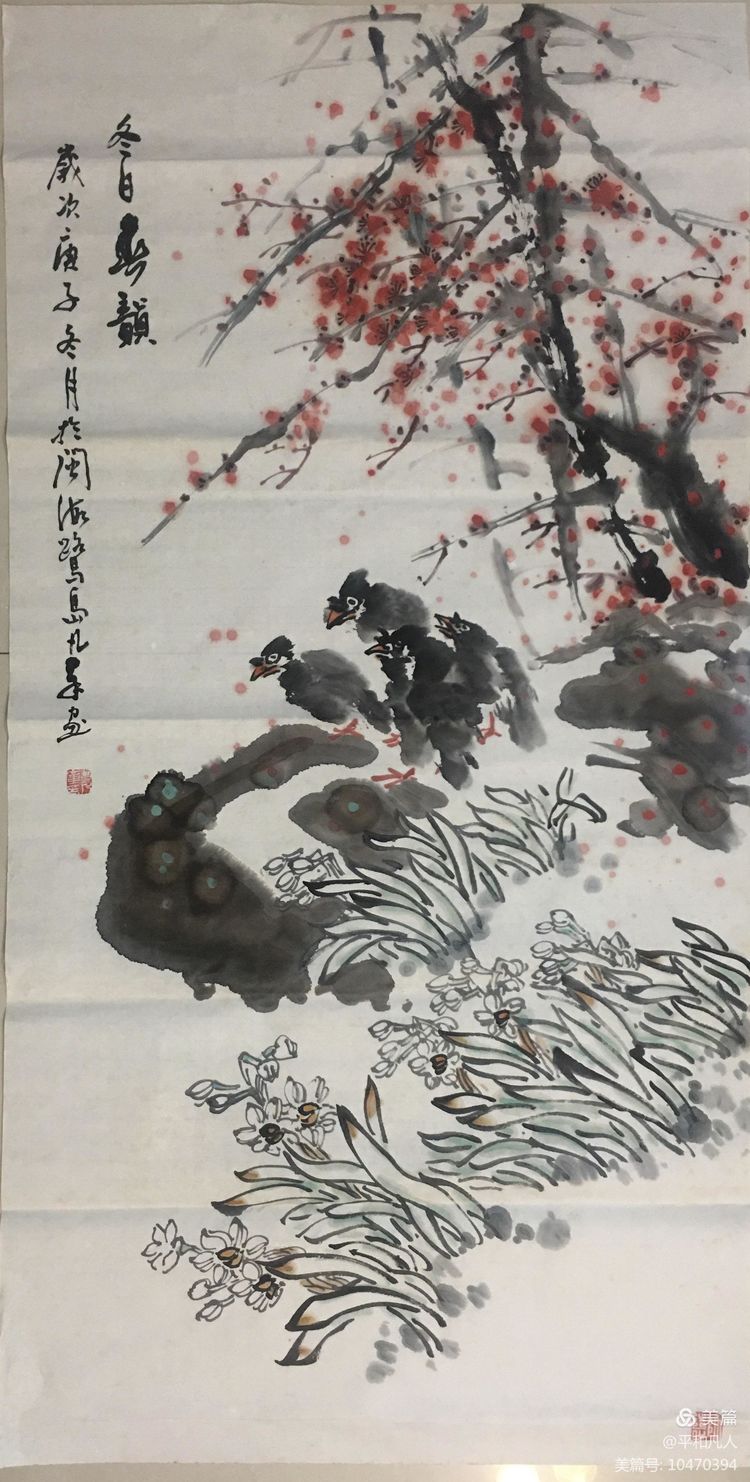 冬日春韻
歲次庚子冬月於閩海鷺島凡平畫
美篇
@平和凡人
美篇号: 10470394